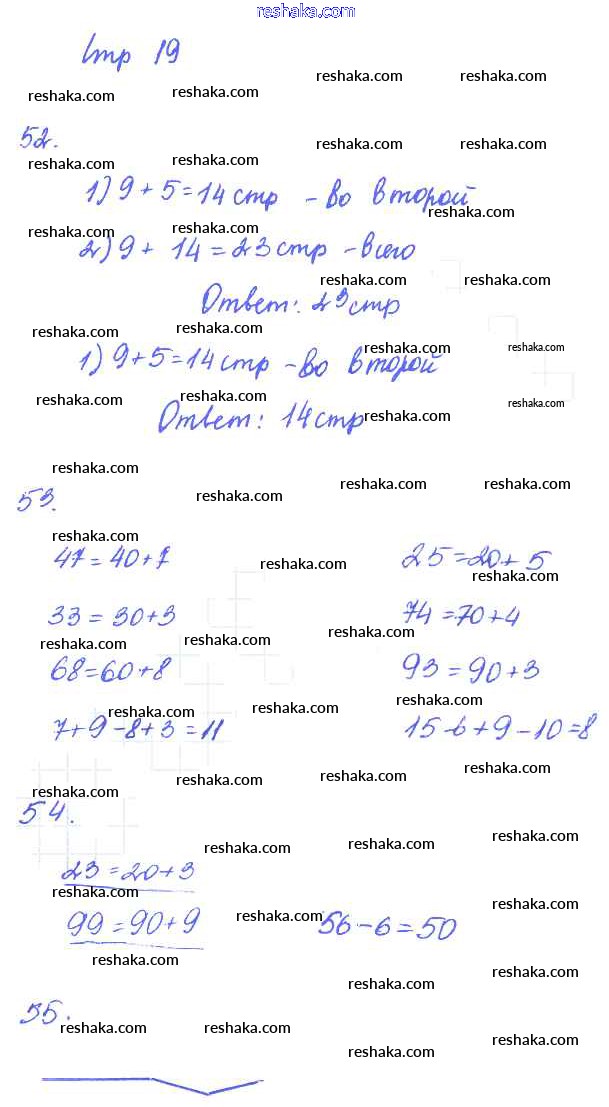 reshaka.com
Стр 19
52.
1) 9 + 5 = 14 стр - во второй
2) 9 + 14 = 23 стр - всего
Ответ: 23 стр
1) 9 + 5 = 14 стр - во второй
Ответ: 14 стр
53.
47 = 40 + 7 25 = 20 + 5
33 = 30 + 3 74 = 70 + 4
68 = 60 + 8 93 = 90 + 3
7 + 9 - 8 + 3 = 11 15 - 6 + 9 - 10 = 8
54.
23 = 20 + 3
99 = 90 + 9 56 - 6 = 50
55.